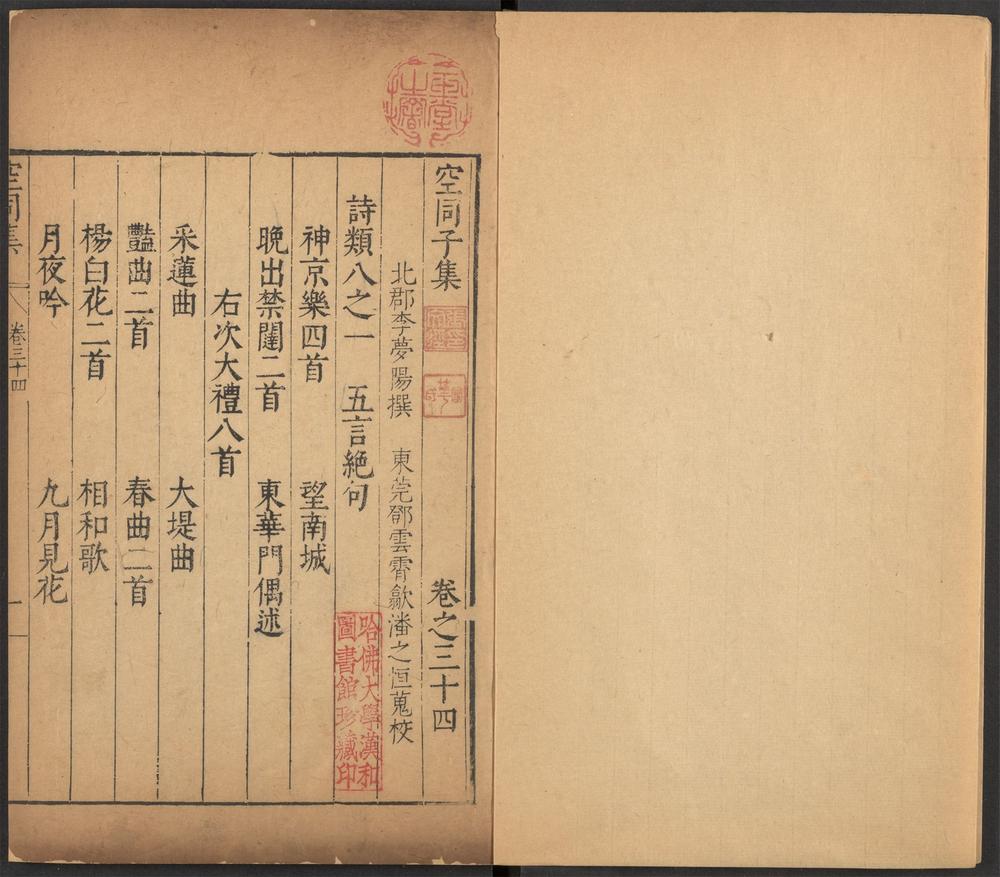 空同子集 卷之三十四
北郡李夢陽撰 東莞鄧雲霄歙潘之恒蒐校
詩類八之一 五言絕句
神京樂四首 望南城
晚出禁闈二首 東華門偶述
右次大禮八首
采蓮曲 大堤曲
豔曲二首 春曲二首
楊白花二首 相和歌
月夜吟 九月見花
空同集 卷三十四 一
哈佛大學漢和
圖書館珍藏印